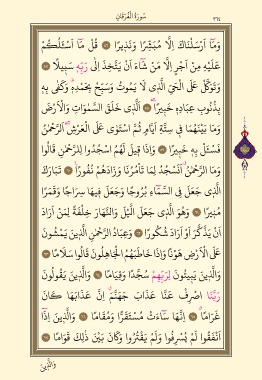 سُورَةُ الْفُرْقَانِ
٣٦٤
وَمَٓا اَرْسَلْنَاكَ اِلَّا مُبَشِّرًا وَنَذ۪يرًا ﴿٥٦﴾ قُلْ مَٓا اَسْـَٔلُكُمْ
عَلَيْهِ مِنْ اَجْرٍ اِلَّا مَنْ شَٓاءَ اَنْ يَتَّخِذَ اِلٰى رَبِّه۪ سَب۪يلًا ﴿٥٧﴾
وَتَوَكَّلْ عَلَى الْحَيِّ الَّذ۪ي لَا يَمُوتُ وَسَبِّحْ بِحَمْدِه۪ۜ وَكَفٰى بِه۪
بِذُنُوبِ عِبَادِه۪ خَب۪يرًاۚ ﴿٥٨﴾ اَلَّذ۪ي خَلَقَ السَّمٰوَاتِ وَالْاَرْضَ
وَمَا بَيْنَهُمَا ف۪ي سِتَّةِ اَيَّامٍ ثُمَّ اسْتَوٰى عَلَى الْعَرْشِۚ اَلرَّحْمٰنُ
فَسْـَٔلْ بِه۪ خَب۪يرًا ﴿٥٩﴾ وَاِذَا ق۪يلَ لَهُمُ اسْجُدُوا لِلرَّحْمٰنِ قَالُوا
وَمَا الرَّحْمٰنُ اَنَسْجُدُ لِمَا تَأْمُرُنَا وَزَادَهُمْ نُفُورًا ﴿٦٠﴾ تَبَارَكَ
الَّذ۪ي جَعَلَ فِي السَّمَٓاءِ بُرُوجًا وَجَعَلَ ف۪يهَا سِرَاجًا وَقَمَرًا
مُن۪يرًا ﴿٦١﴾ وَهُوَ الَّذ۪ي جَعَلَ الَّيْلَ وَالنَّهَارَ خِلْفَةً لِمَنْ اَرَادَ
اَنْ يَذَّكَّرَ اَوْ اَرَادَ شُكُورًا ﴿٦٢﴾ وَعِبَادُ الرَّحْمٰنِ الَّذ۪ينَ يَمْشُونَ
عَلَى الْاَرْضِ هَوْنًا وَاِذَا خَاطَبَهُمُ الْجَاهِلُونَ قَالُوا سَلَامًا ﴿٦٣﴾
وَالَّذ۪ينَ يَب۪يتُونَ لِرَبِّهِمْ سُجَّدًا وَقِيَامًا ﴿٦٤﴾ وَالَّذ۪ينَ يَقُولُونَ
رَبَّنَا اصْرِفْ عَنَّا عَذَابَ جَهَنَّمَۗ اِنَّ عَذَابَهَا كَانَ
غَرَامًاۗ ﴿٦٥﴾ اِنَّهَا سَٓاءَتْ مُسْتَقَرًّا وَمُقَامًا ﴿٦٦﴾ وَالَّذ۪ينَ اِذَٓا
اَنْفَقُوا لَمْ يُسْرِفُوا وَلَمْ يَقْتُرُوا وَكَانَ بَيْنَ ذٰلِكَ قَوَامًا ﴿٦٧﴾
وَالَّذ۪ينَ